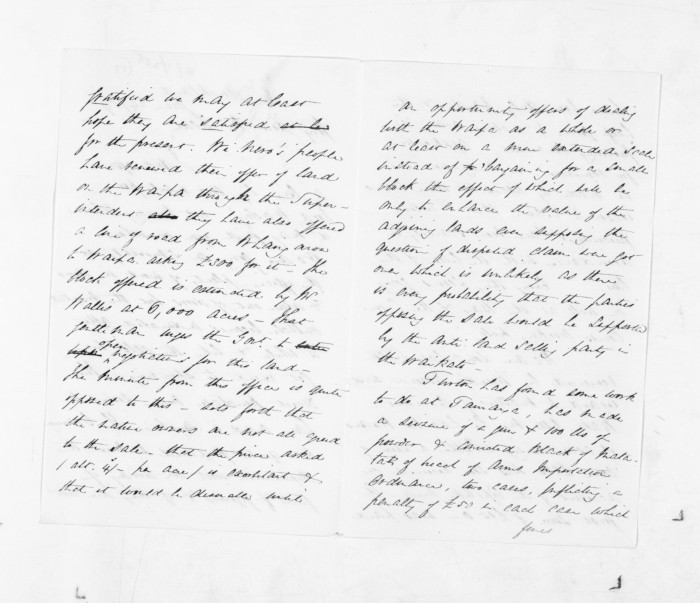 gratified we may at least
hope they are satisfied at le
for the present. Wi Nero's people
have renewed their offer of land
on the Waipa through the Super-
intendent also they have also offered
a line of road from Whaingaroa
to Waipa asking £500 for it - The
block offered is estimated by Mr
Wallis at 6,000 acres - That
gentleman urges the Govt to enter
open negotiations for this land -
The minute from this office is quite
opposed to this - sets forth that
the native owners are not all agreed
to the sale - that the price asked
(abt. 4/- per acre) is exorbitant &
that it would be desirable until
an opportunity offers of dealing
with the Waipa as a whole or
at least on a more extended scale
instead of bargaining for a small
block the effect of which will be
only to enhance the value of the
adjoining lands even supposing the
question of disputed claim were got
over which is unlikely as there
is every probability that the parties
opposing the sale would be supported
by the anti land selling party in
the Waikato -
Turton has found some work
to do at Tauranga, has made
a seizure of a gun & 100 lbs of
powder & convicted Black of Mata-
ta of breach of Arms Importation
Ordinance, two cases, inflicting a
penalty of £50 in each case which
fines